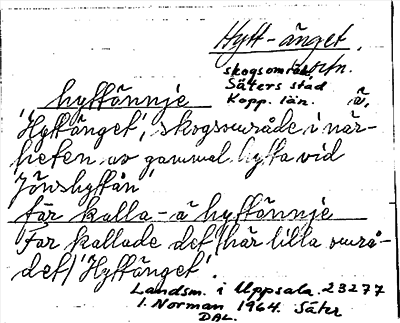 Hytt-änget,
ortn.
skogsområde
Säters stad
Kopp. län.
hyttännje
'Hyttänget', skogsområde i när-
heten av gammal hytta vid
'Jönshyttan'
fär kalla-ä hyttännje
Far kallade det här lilla områ-
det 'Hyttänget'.
Landsm. i Uppsala 23277
I. Norman 1964. Säter
DAL.